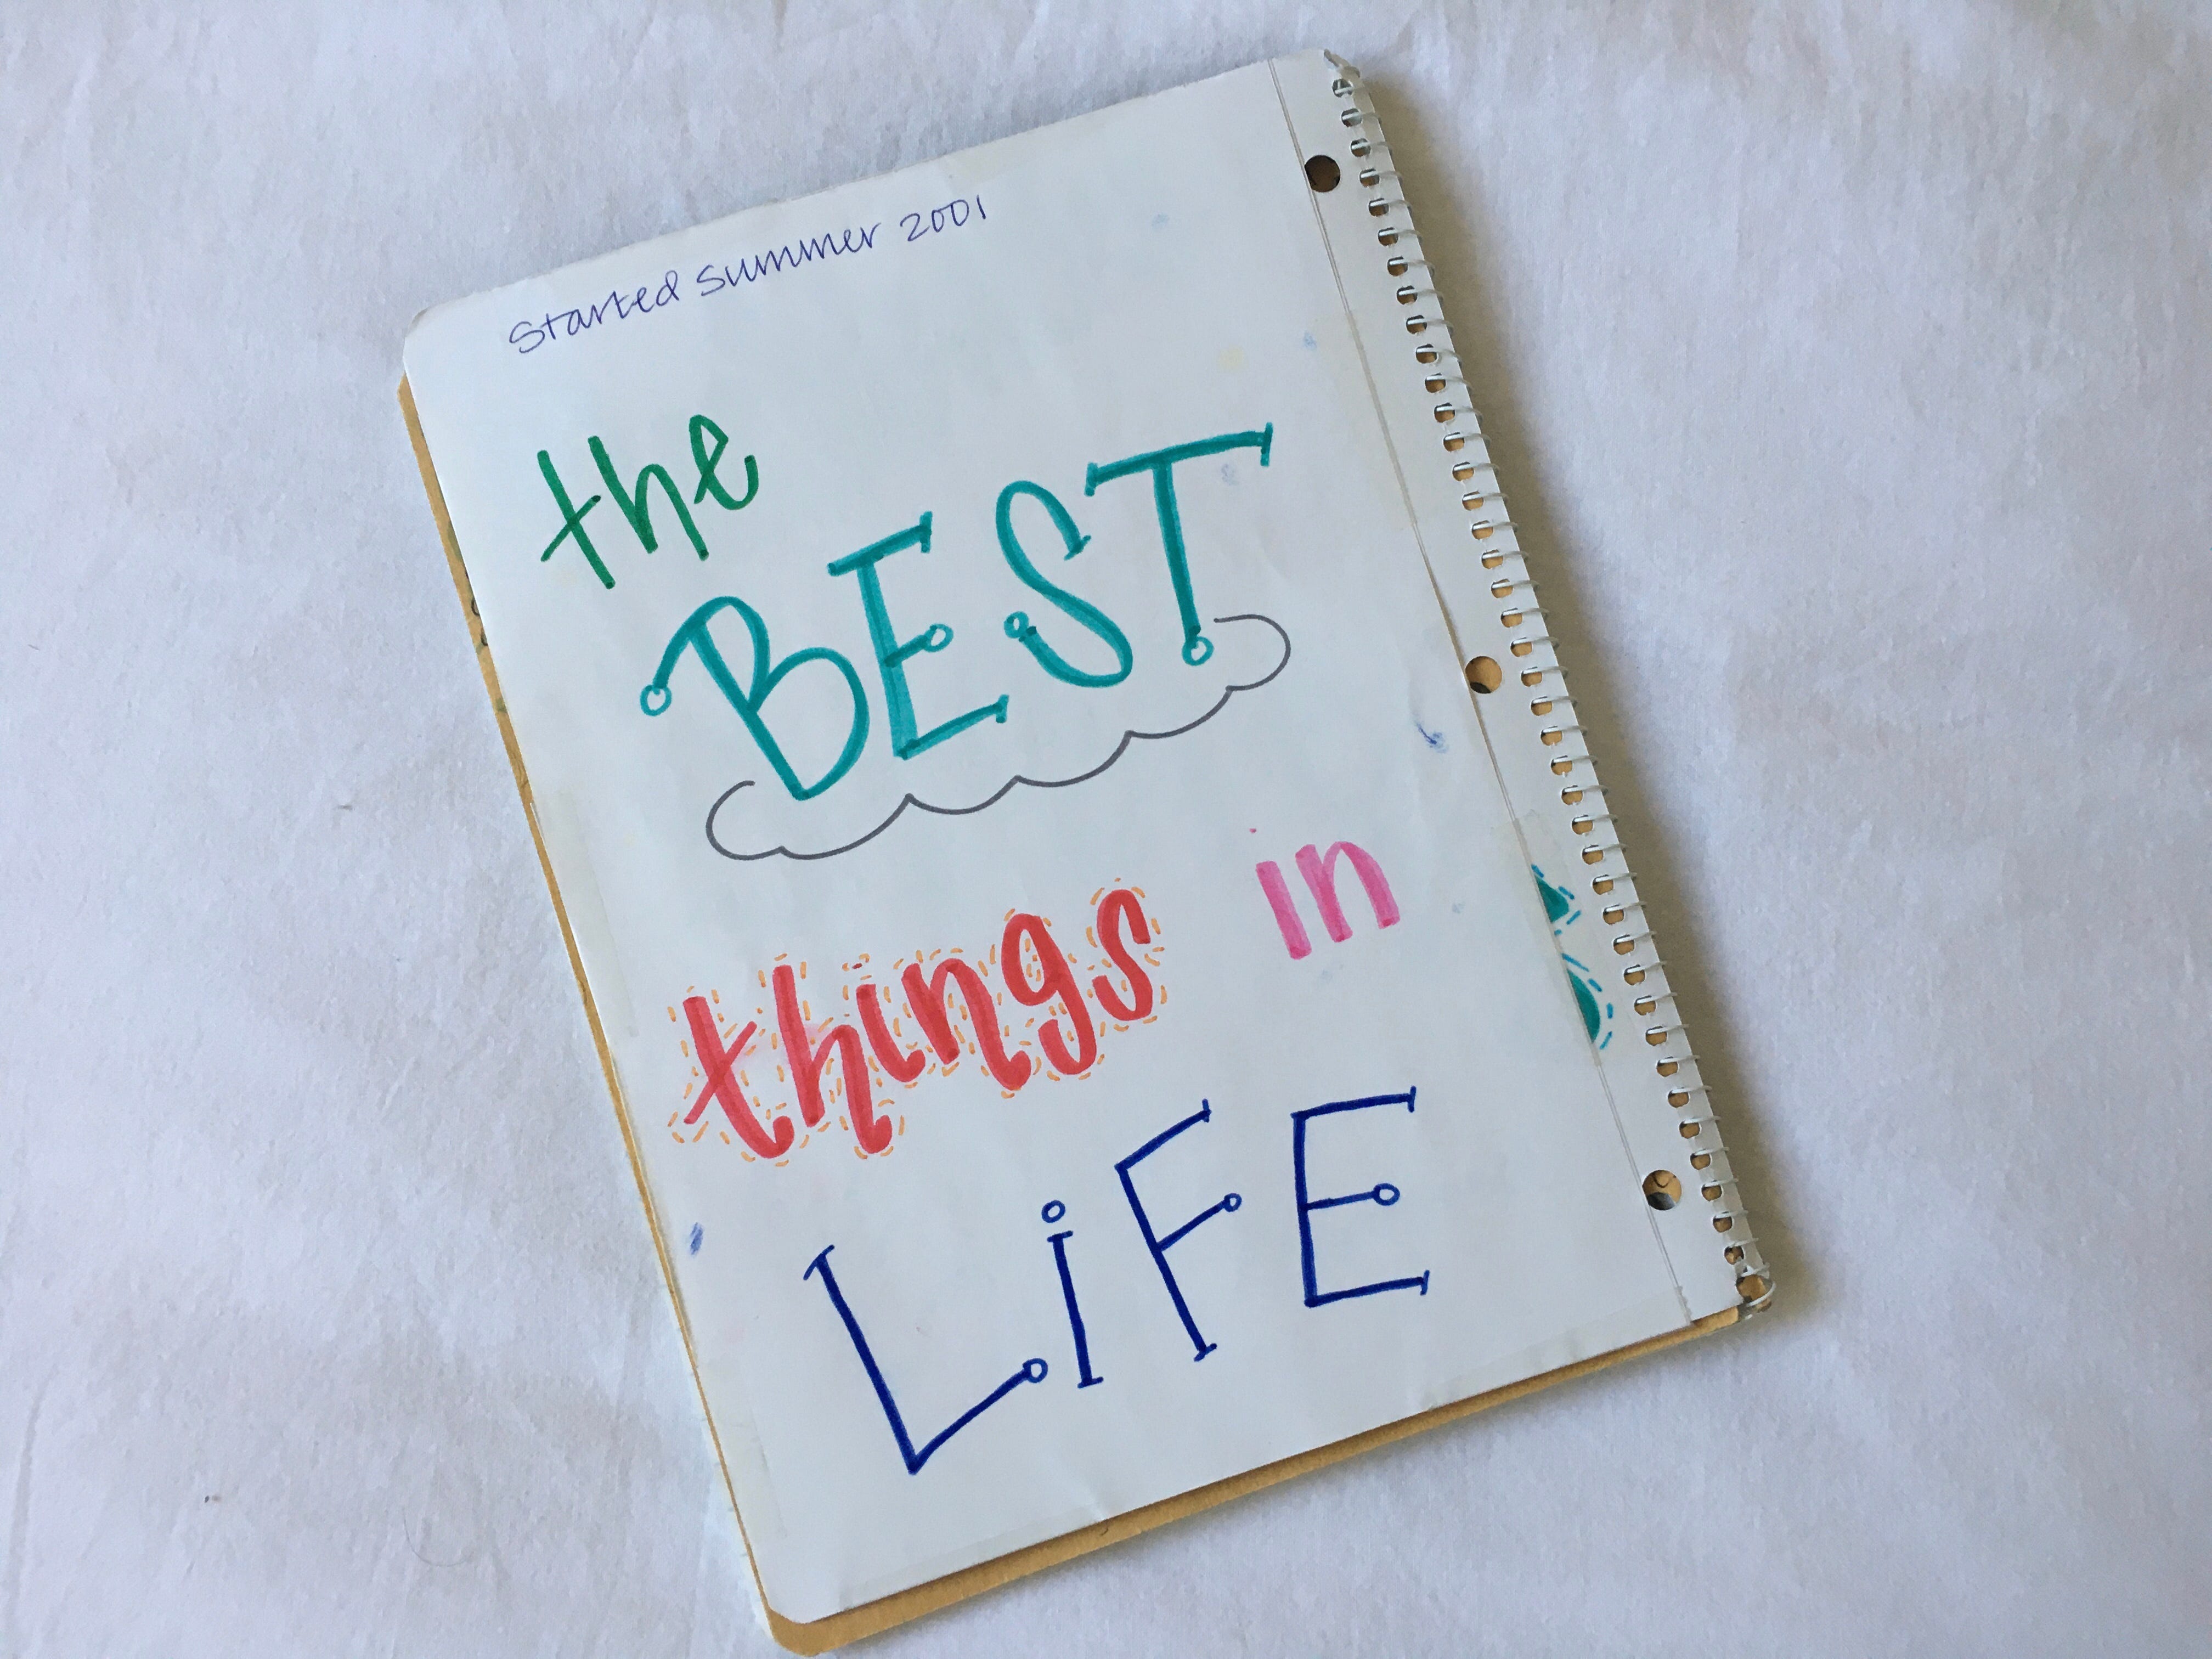 Started Summer 2001
the
BEST
things in
LiFE